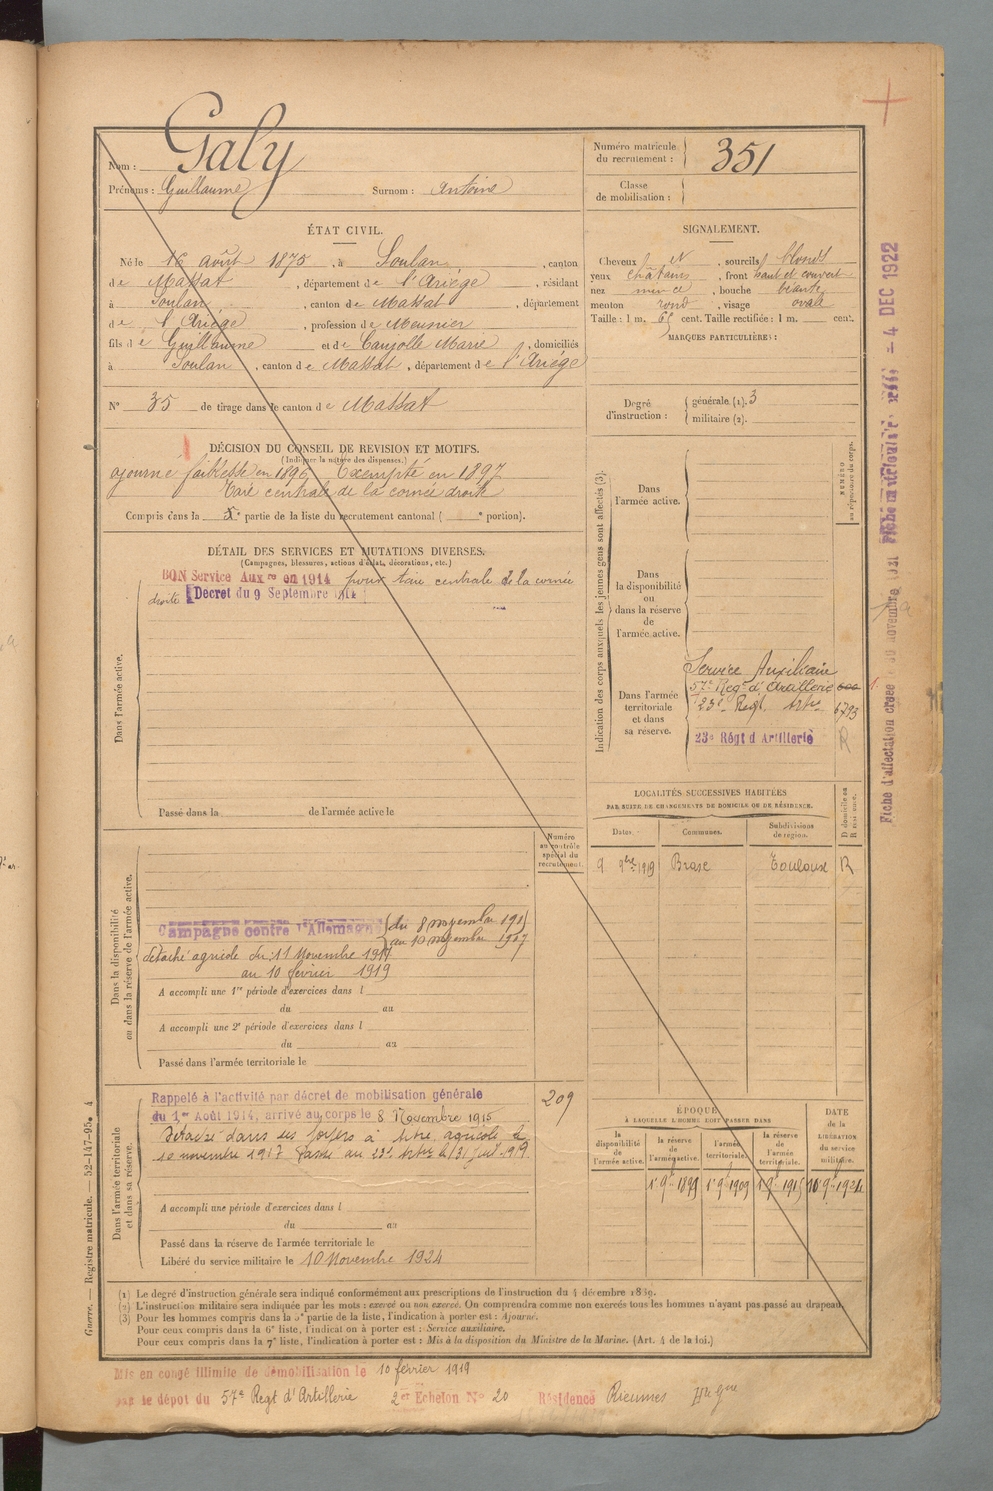 Nom : Galy
Prénoms : Guillaume Surnom : Antoine
Numéro matricule du recrutement : 351
Classe de mobilisation :
ÉTAT CIVIL.
Né le 16 août 1875, à Soulan, canton
de Massat, département de l'Ariège, résidant
à Soulan, canton de Massat, département
de l'Ariège, profession de Meunier
fils de Guillaume et de Caujolle Marie, domiciliés
à Soulan, canton de Massat, département de l'Ariège
N° 35 de tirage dans le canton de Massat
SIGNALEMENT.
Cheveux et N, sourcils blonds
yeux châtains, front haut et couvert
nez mince, bouche béante
menton rond, visage ovale
Taille : 1 m. 68 cent. Taille rectifiée : 1 m. cent.
MARQUES PARTICULIÈRES :
Degré d'instruction : générale (1). 3
militaire (2).
DÉCISION DU CONSEIL DE REVISION ET MOTIFS.
(Indiquer la nature des dispenses.)
ajourné faiblesse en 1896 Exempté en 1897
Taie centrale de la cornée droite
Compris dans la e partie de la liste du recrutement cantonal ( e portion).
DÉTAIL DES SERVICES ET MUTATIONS DIVERSES.
(Campagnes, blessures, actions d'éclat, décorations, etc.)
BON Service Auxre en 1914 pour taie centrale de la cornée
droite Decret du 9 Septembre 1914
Dans l'armée active.
Passé dans la de l'armée active le
Indication des corps auxquels les jeunes gens sont affectés (3).
NUMÉRO au répertoire du corps.
Dans l'armée active.
Dans la disponibilité ou dans la réserve de l'armée active.
Dans l'armée territoriale et dans sa réserve.
Service Auxiliaire
57e Regt d'Artillerie
23e Regt Artie 6793
23e Régt d'Artillerie R
LOCALITÉS SUCCESSIVES HABITÉES
PAR SUITE DE CHANGEMENTS DE DOMICILE OU DE RÉSIDENCE.
D domicile ou R résidence.
Dates. Communes. Subdivisions de région.
9 9bre 1919 Toulouse R
Numéro au contrôle spécial du recrutement.
Dans la disponibilité ou dans la réserve de l'armée active.
Campagne contre l'Allemagne du 8 novembre 1915
au 10 novembre 1917
détaché agricole du : 11 Novembre 1917
au 10 février 1919
A accompli une 1re période d'exercices dans l
du au
A accompli une 2e période d'exercices dans l
du au
Passé dans l'armée territoriale le
Dans l'armée territoriale et dans sa réserve.
Rappelé à l'activité par décret de mobilisation générale 209
du 1er Août 1914, arrivé au corps le 8 Novembre 1915
Détaché dans ses foyers à titre agricole le
10 novembre 1917 Passé au 23e Artie le 31 Juil. 1919.
A accompli une période d'exercices dans l
du au
Passé dans la réserve de l'armée territoriale le
Libéré du service militaire le 10 Novembre 1924
ÉPOQUE
À LAQUELLE L'HOMME DOIT PASSER DANS
DATE de la LIBÉRATION du service militaire.
la disponibilité de l'armée active. la réserve de l'armée active. l'armée territoriale. la réserve de l'armée territoriale.
1r 9bre 1899 1r 9bre 1909 1r 9bre 1915 10 9bre 1924
(1) Le degré d'instruction générale sera indiqué conformément aux prescriptions de l'instruction du 4 décembre 1889.
(2) L'instruction militaire sera indiquée par les mots : exercé ou non exercé. On comprendra comme non exercés tous les hommes n'ayant pas passé au drapeau.
(3) Pour les hommes compris dans la 5e partie de la liste, l'indication à porter est : Ajourné.
Pour ceux compris dans la 6e liste, l'indication à porter est : Service auxiliaire.
Pour ceux compris dans la 7e liste, l'indication à porter est : Mis à la disposition du Ministre de la Marine. (Art. 4 de la loi.)
Mis en congé illimité de démobilisation le 10 février 1919
par le dépôt du 57e Regt d'Artillerie 2er Echelon N° 20 Résidence Rieumes Hte Gne
Guerre. — Registre matricule. — 52-147-95. 4
Fiche d'affectation créée novembre 1921
- 4 DEC 1922